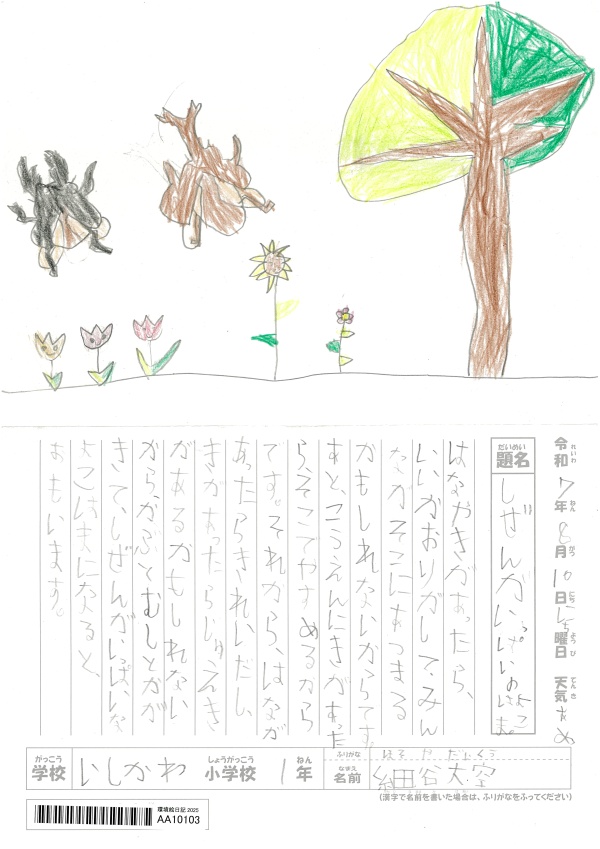 令和7年8月10日にち曜日 天気 あめ
れいわ ねん がつ にち ようび てんき
だいめい
題名 しぜんがいっぱいのよこはま。
はなやきがあったら、
いいかおりがして、みん
ながそこにあつまる
かもしれないからです。
あと、こうえんにきがあった
らそこでやすめるから
です。それから、はなが
あったらきれいだし、
きがあったらじゅえき
があるかもしれない
から、かぶとむしとかが
きて、しぜんがいっぱいな
よこはまになると、
おもいます。
がっこう しょうがっこう ねん ふりがな ほそ や だいくう
学校 いしかわ 小学校 1年 なまえ 名前 細谷大空
(漢字で名前を書いた場合は、ふりがなをふってください)
環境絵日記 2025
AA10103